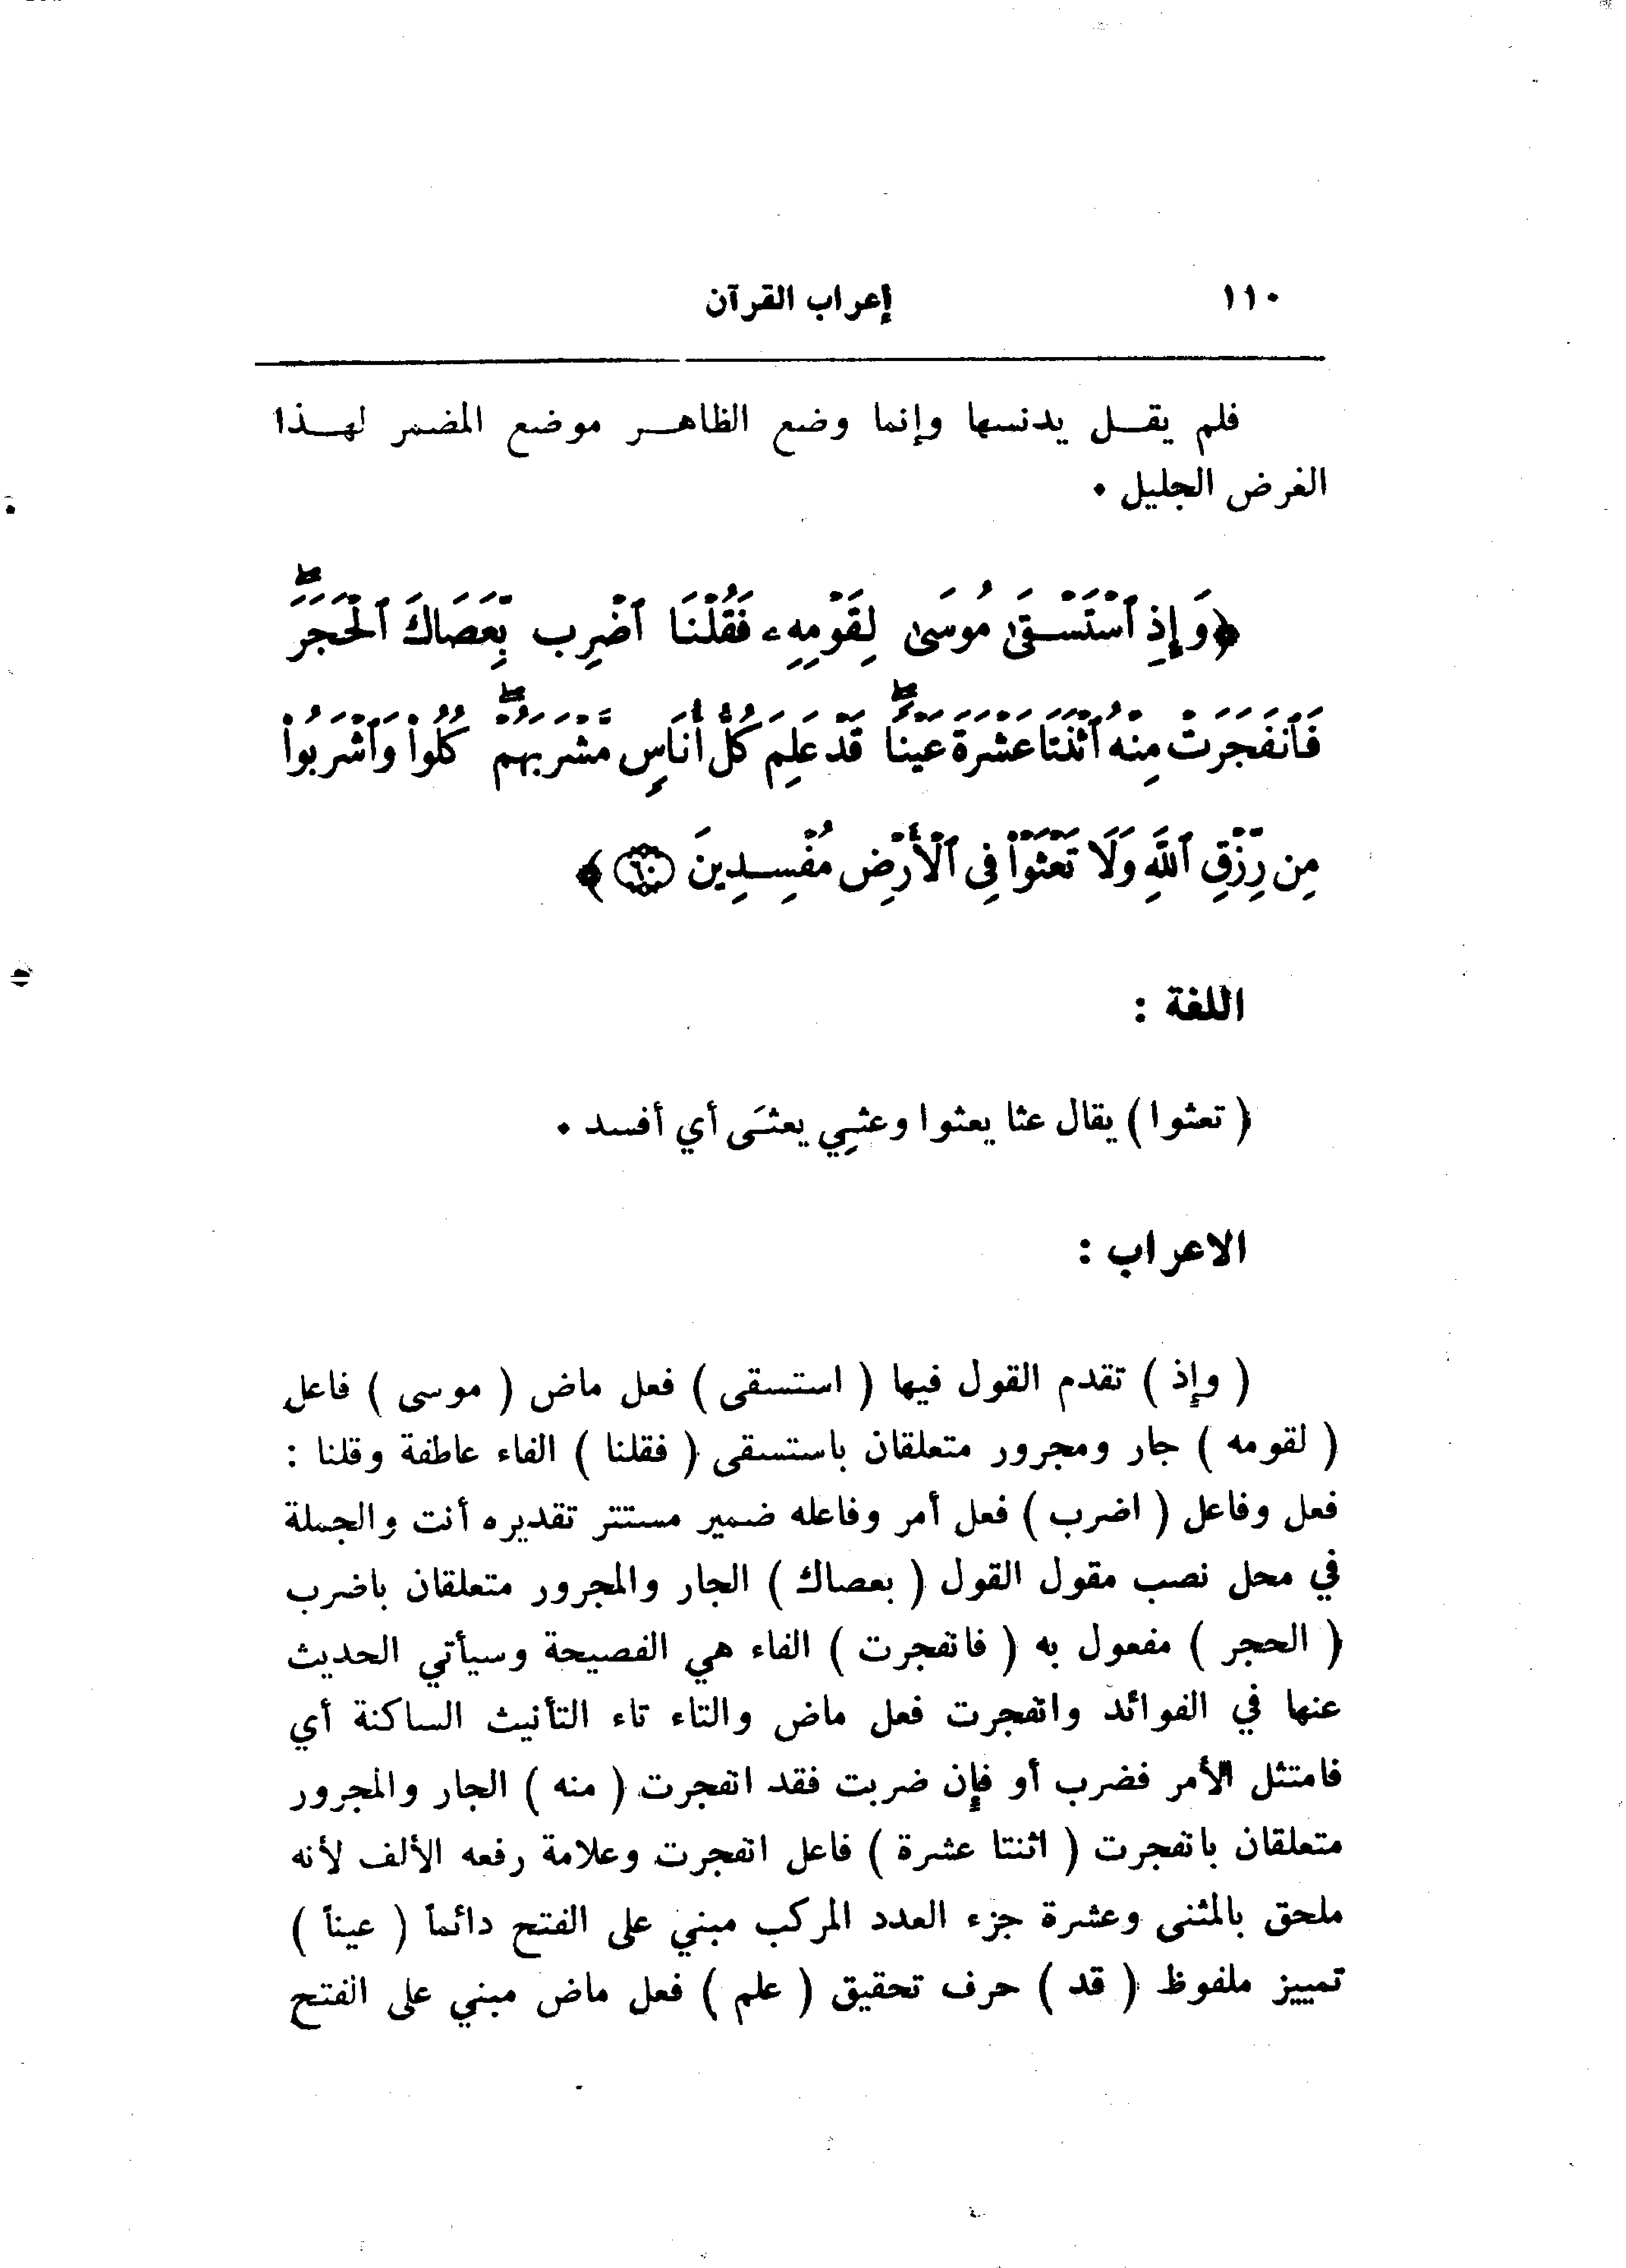 ١١٠ إعراب القرآن
فلم يقـل يدنسها وإنما وضع الظاهـر موضع المضمر لهـذا
الغرض الجليل ٠
﴿وَإِذِ ٱسْتَسْقَىٰ مُوسَىٰ لِقَوْمِهِۦ فَقُلْنَا ٱضْرِب بِّعَصَاكَ ٱلْحَجَرَۖ
فَٱنفَجَرَتْ مِنْهُ ٱثْنَتَا عَشْرَةَ عَيْنًاۖ قَدْ عَلِمَ كُلُّ أُنَاسٍ مَّشْرَبَهُمْۖ كُلُوا۟ وَٱشْرَبُوا۟
مِن رِّزْقِ ٱللَّهِ وَلَا تَعْثَوْا۟ فِى ٱلْأَرْضِ مُفْسِدِينَ ٦٠﴾
اللغة :
( تعثوا ) يقال عثا يعثوا وعثِي يعثَى أي أفسد ٠
الاعراب :
( وإذ ) تقدم القول فيها ( استسقى ) فعل ماض ( موسى ) فاعل
( لقومه ) جار ومجرور متعلقان باستسقى ( فقلنا ) الفاء عاطفة وقلنا :
فعل وفاعل ( اضرب ) فعل أمر وفاعله ضمير مستتر تقديره أنت والجملة
في محل نصب مقول القول ( بعصاك ) الجار والمجرور متعلقان باضرب
( الحجر ) مفعول به ( فانفجرت ) الفاء هي الفصيحة وسيأتي الحديث
عنها في الفوائد وانفجرت فعل ماض والتاء تاء التأنيث الساكنة أي
فامتثل الأمر فضرب أو فإن ضربت فقد انفجرت ( منه ) الجار والمجرور
متعلقان بانفجرت ( اثنتا عشرة ) فاعل انفجرت وعلامة رفعه الألف لأنه
ملحق بالمثنى وعشرة جزء العدد المركب مبني على الفتح دائماً ( عيناً )
تمييز ملفوظ ( قد ) حرف تحقيق ( علم ) فعل ماض مبني على الفتح